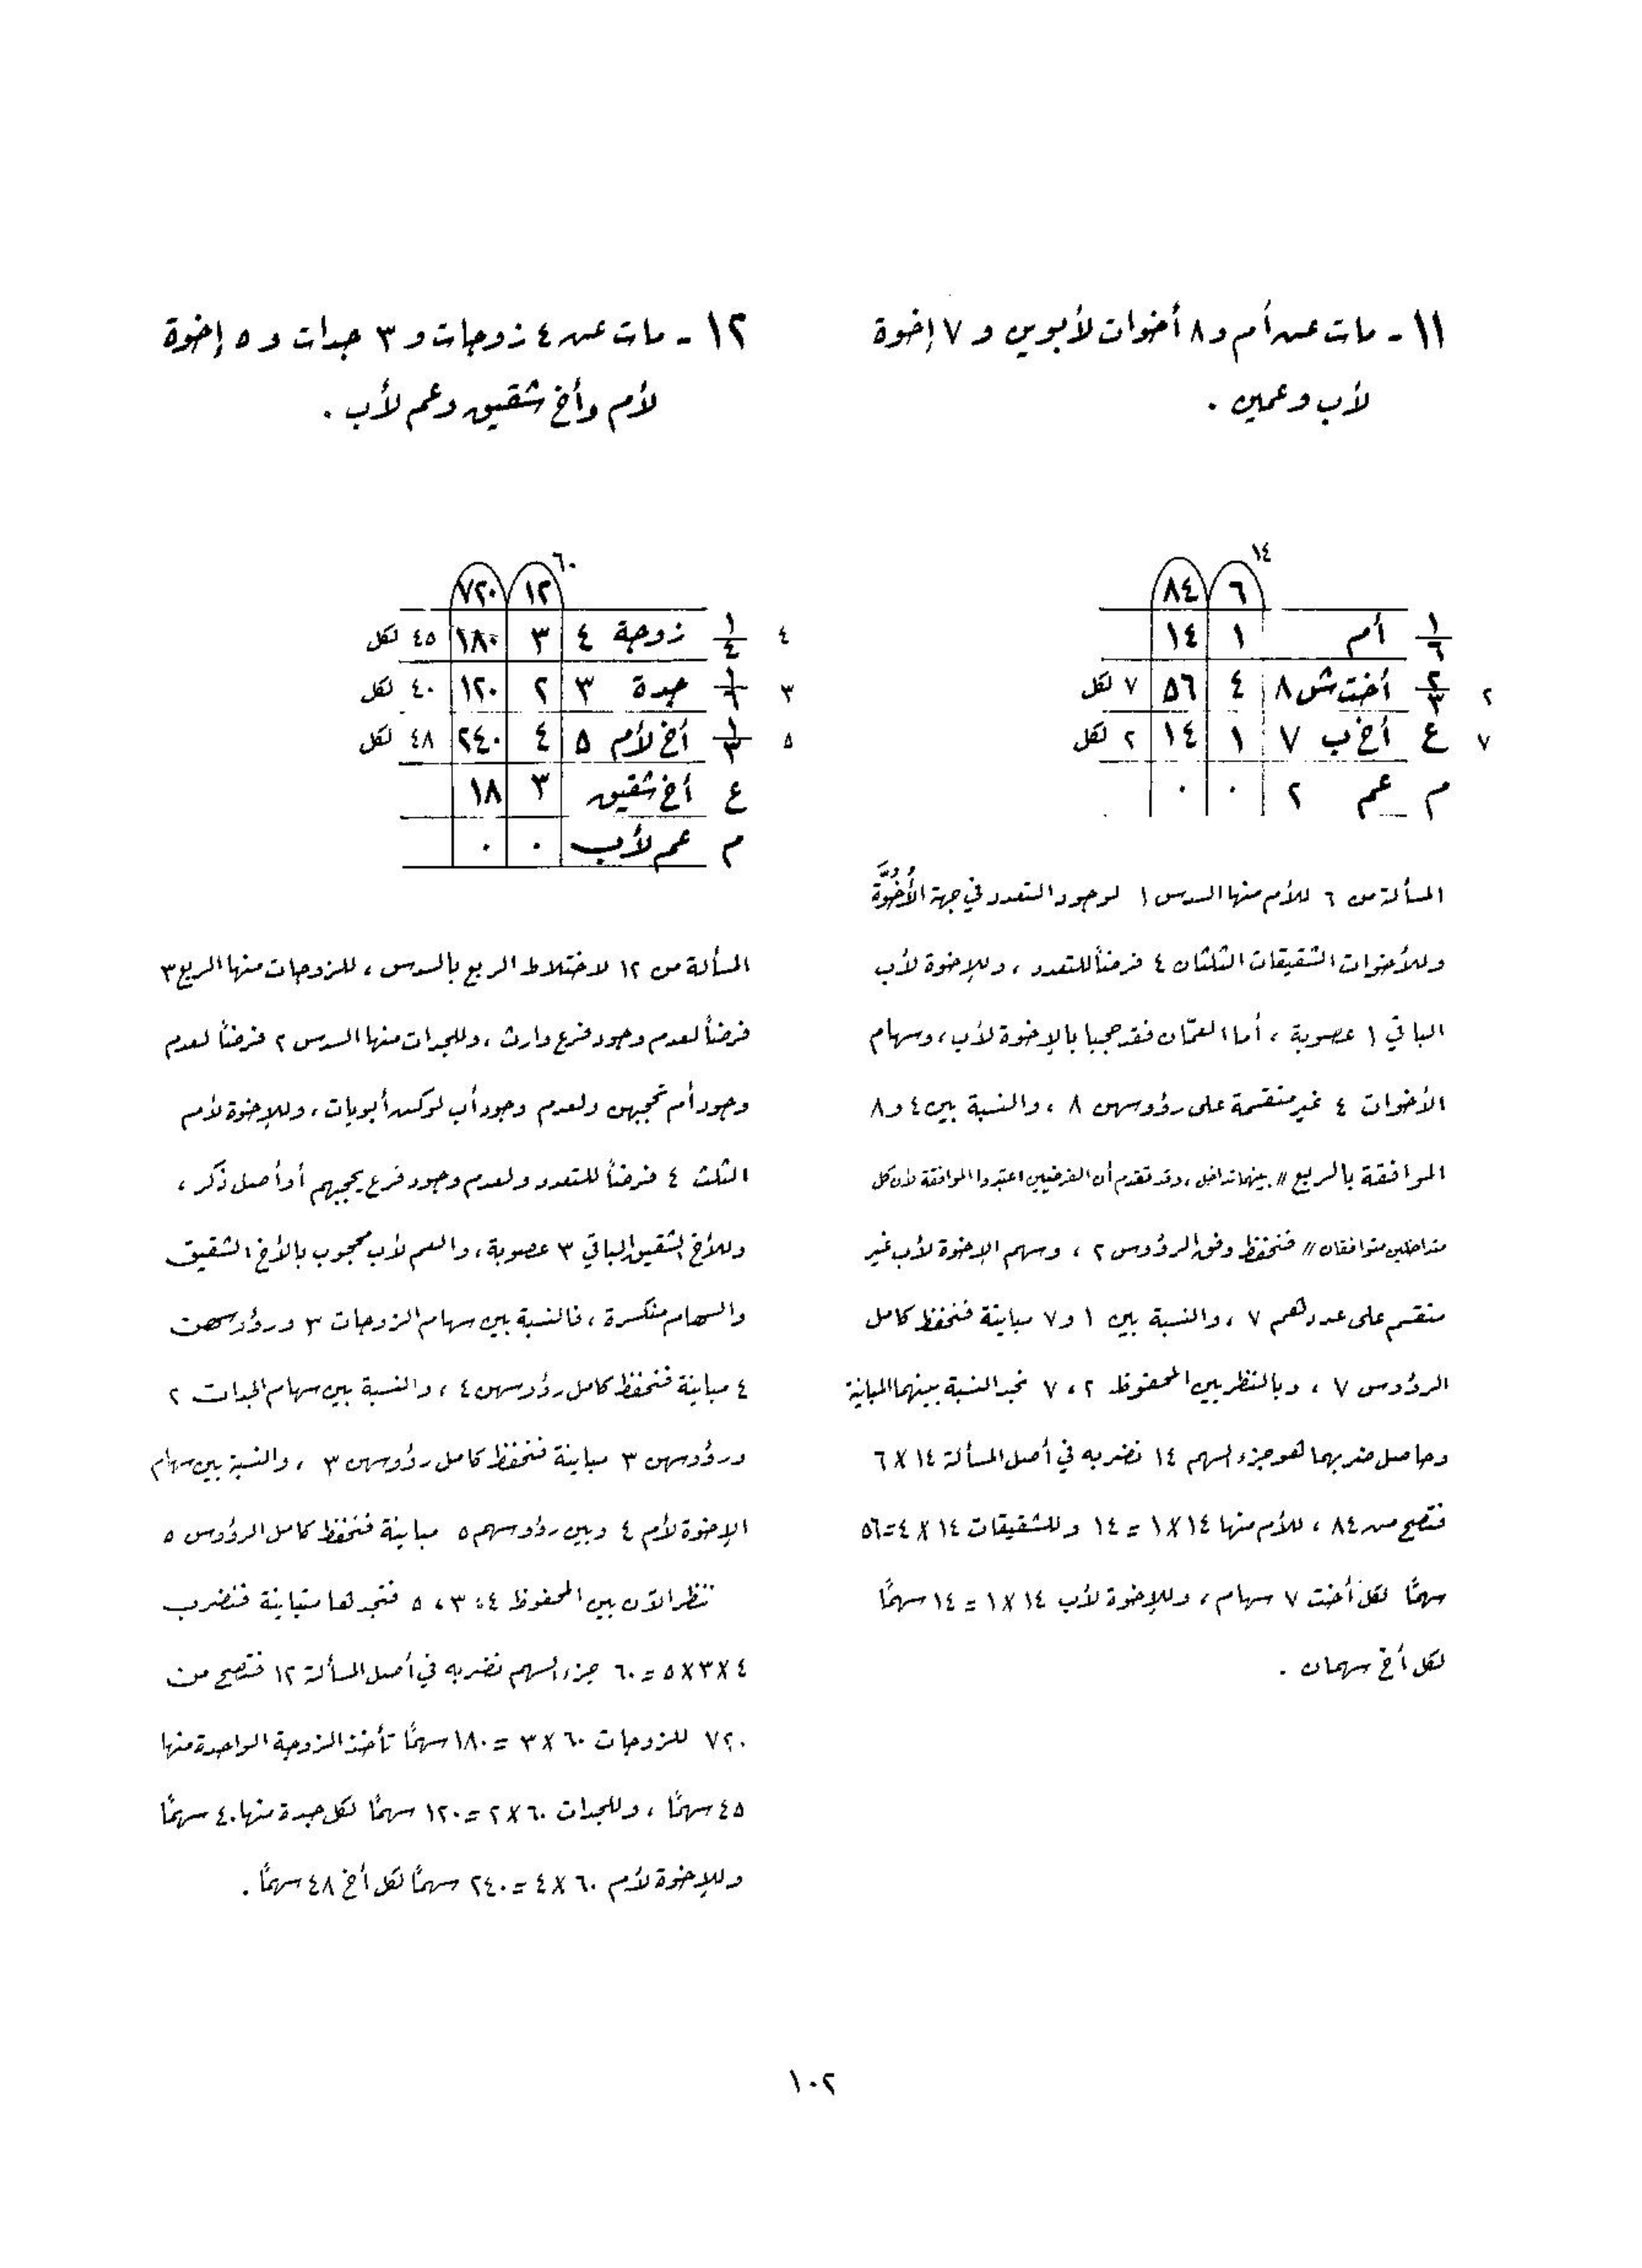 ١١ - مات عن أم و ٨ أخوات لأبوين و ٧ إخوة
لأب وعمين .
١٤
٦ ٨٤
١/٦ أم ١ ١٤
٢ ٢/٣ أخت ش ٨ ٤ ٥٦ ٧ لكل
٧ ع أخ ب ٧ ١ ١٤ ٢ لكل
م عم ٢ ٠ ٠
المسألة من ٦ للأم منها السدس ١ لوجود التعدد في جهة الأُخُوَّة
وللأخوات الشقيقات الثلثان ٤ فرضاً للتعدد ، وللإخوة لأب
الباقي ١ عصوبة ، أما العمّان فقد حجبا بالإخوة لأب ، وسهام
الأخوات ٤ غير منقسمة على رؤوسهن ٨ ، والنسبة بين ٤ و ٨
الموافقة بالربع // بينهما تداخل ، وقد تقدم أن الفرضيين اعتبروا الموافقة لأن كل
متداخلين متوافقان // فنحفظ وفق الرؤوس ٢ ، وسهم الإخوة لأب غير
منقسم على عددهم ٧ ، والنسبة بين ١ و ٧ مباينة فنحفظ كامل
الرؤوس ٧ ، وبالنظر بين المحفوظ ٢ ، ٧ نجد النسبة بينهما المباينة
وحاصل ضربهما هو جزء السهم ١٤ نضربه في أصل المسألة ١٤ × ٦
فتصح من ٨٤ ، للأم منها ١٤ × ١ = ١٤ وللشقيقات ١٤ × ٤ = ٥٦
سهمًا لكل أخت ٧ سهام ، وللإخوة لأب ١٤ × ١ = ١٤ سهمًا
لكل أخ سهمان .
١٢ - مات عن ٤ زوجات و ٣ جدات و ٥ إخوة
لأم وأخ شقيق وعم لأب .
٦٠
١٢ ٧٢٠
٤ ١/٤ زوجة ٤ ٣ ١٨٠ ٤٥ لكل
٣ ١/٦ جدة ٣ ٢ ١٢٠ ٤٠ لكل
٥ ١/٣ أخ لأم ٥ ٤ ٢٤٠ ٤٨ لكل
ع أخ شقيق ٣ ١٨
م عم لأب ٠ ٠
المسألة من ١٢ لاختلاط الربع بالسدس ، للزوجات منها الربع ٣
فرضاً لعدم وجود فرع وارث ، وللجدات منها السدس ٢ فرضاً لعدم
وجود أم تحجبهن ولعدم وجود أب لو كن أبويات ، وللإخوة لأم
الثلث ٤ فرضاً للتعدد ولعدم وجود فرع يحجبهم أو أصل ذكر ،
وللأخ الشقيق الباقي ٣ عصوبة ، والعم لأب محجوب بالأخ الشقيق
والسهام منكسرة ، فالنسبة بين سهام الزوجات ٣ ورؤوسهن
٤ مباينة فنحفظ كامل رؤوسهن ٤ ، والنسبة بين سهام الجدات ٢
ورؤوسهن ٣ مباينة فنحفظ كامل رؤوسهن ٣ ، والنسبة بين سهام
الإخوة لأم ٤ وبين رؤوسهم ٥ مباينة فنحفظ كامل الرؤوس ٥
ننظر الآن بين المحفوظ ٤ ، ٣ ، ٥ فنجدها متباينة فنضرب
٤ × ٣ × ٥ = ٦٠ جزء السهم نضربه في أصل المسألة ١٢ فتصح من
٧٢٠ للزوجات ٦٠ × ٣ = ١٨٠ سهمًا تأخذ الزوجة الواحدة منها
٤٥ سهمًا ، وللجدات ٦٠ × ٢ = ١٢٠ سهمًا لكل جدة منها ٤٠ سهمًا
وللإخوة لأم ٦٠ × ٤ = ٢٤٠ سهمًا لكل أخ ٤٨ سهمًا .
١٠٢